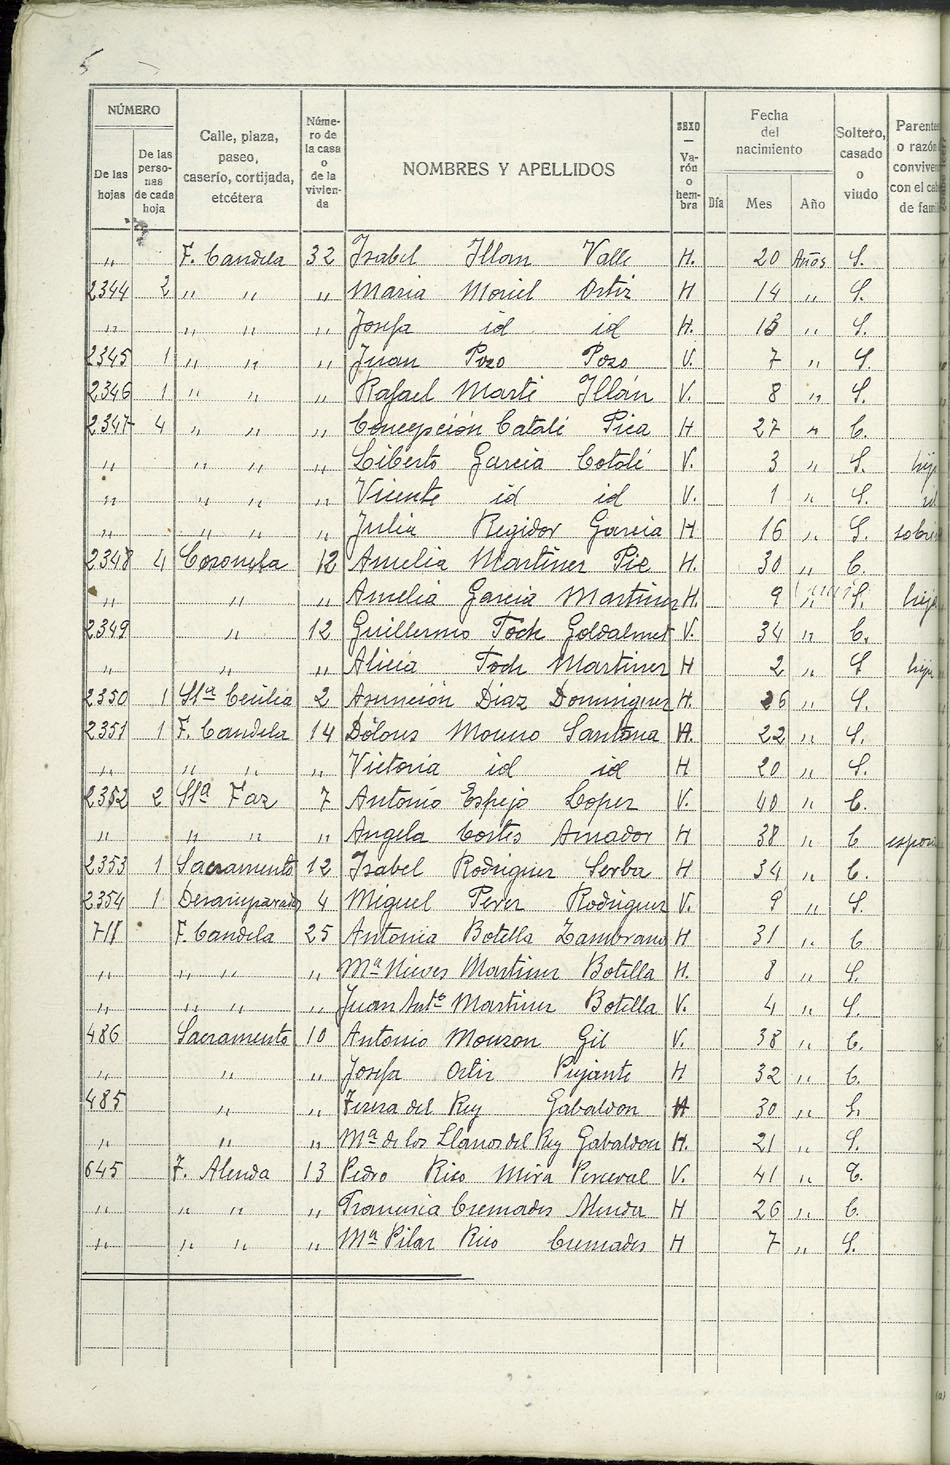 5
NÚMERO
De las hojas
De las perso- nas de cada hoja
Calle, plaza, paseo, caserío, cortijada, etcétera
Núme- ro de la casa o de la vivien- da
NOMBRES Y APELLIDOS
SEXO — Va- rón o hem- bra
Fecha del nacimiento
Día Mes Año
Soltero, casado o viudo
Parente o razón convive con el ca de fami
" F. Candela 32 Isabel Illan Valle H. 20 Años S.
2344 2 " " " Maria Moriel Ortiz H 14 " S.
" " " " Josefa id id H. 13 " S.
2345 1 " " " Juan Pozo Pozo V. 7 " S.
2346 1 " " " Rafael Marti Illán V. 8 " S.
2347 4 " " " Concepción Catalí Pica H 27 " C.
" " " " Liberto Garcia Catalí V. 3 " S. hijo
" " " " Vicente id id V. 1 " S. id
" " " " Julia Regidor Garcia H 16 " S. sobri
2348 4 12 Amelia Martinez Pie H. 30 " C.
" " " Amelia Garcia Martinez H. 9 " S. hija
2349 " 12 Guillermo V. 34 " C.
" " " Alicia Martinez H 2 " S hija
2350 1 Sta Cecilia 2 Asunción Diaz Dominguez H. 26 " S.
2351 1 F. Candela 14 Dolores Moreno Santana H. 22 " S.
" " " " Victoria id id H 20 " S.
2352 2 Sta Faz 7 Antonio Espejo Lopez V. 40 " C.
" " " " Angela Cortes Amador H 38 " C espos
2353 1 Sacramento 12 Isabel Rodriguez Serba H 34 " C.
2354 1 Desamparados 4 Miguel Perez Rodriguez V. 9 " S.
711 F. Candela 25 Antonia Botella Zambrano H 31 " C
" " " " Ma Nieves Martinez Botella H. 8 " S.
" " " " Juan Anto Martinez Botella V. 4 " S.
486 Sacramento 10 Antonio Monzon Gil V. 38 " C.
" " " Josefa Ortiz Pujante H 32 " C.
485 " " Teresa del Rey Gabaldon H 30 " S.
" " " Ma de los Llanos del Rey Gabaldon H. 21 " S.
645 F. Alenda 13 Pedro Rico Mira Perceval V. 41 " C.
" " " " Francisca Cremades Alenda H 26 " C.
" " " " Ma Pilar Rico Cremades H 7 " S.